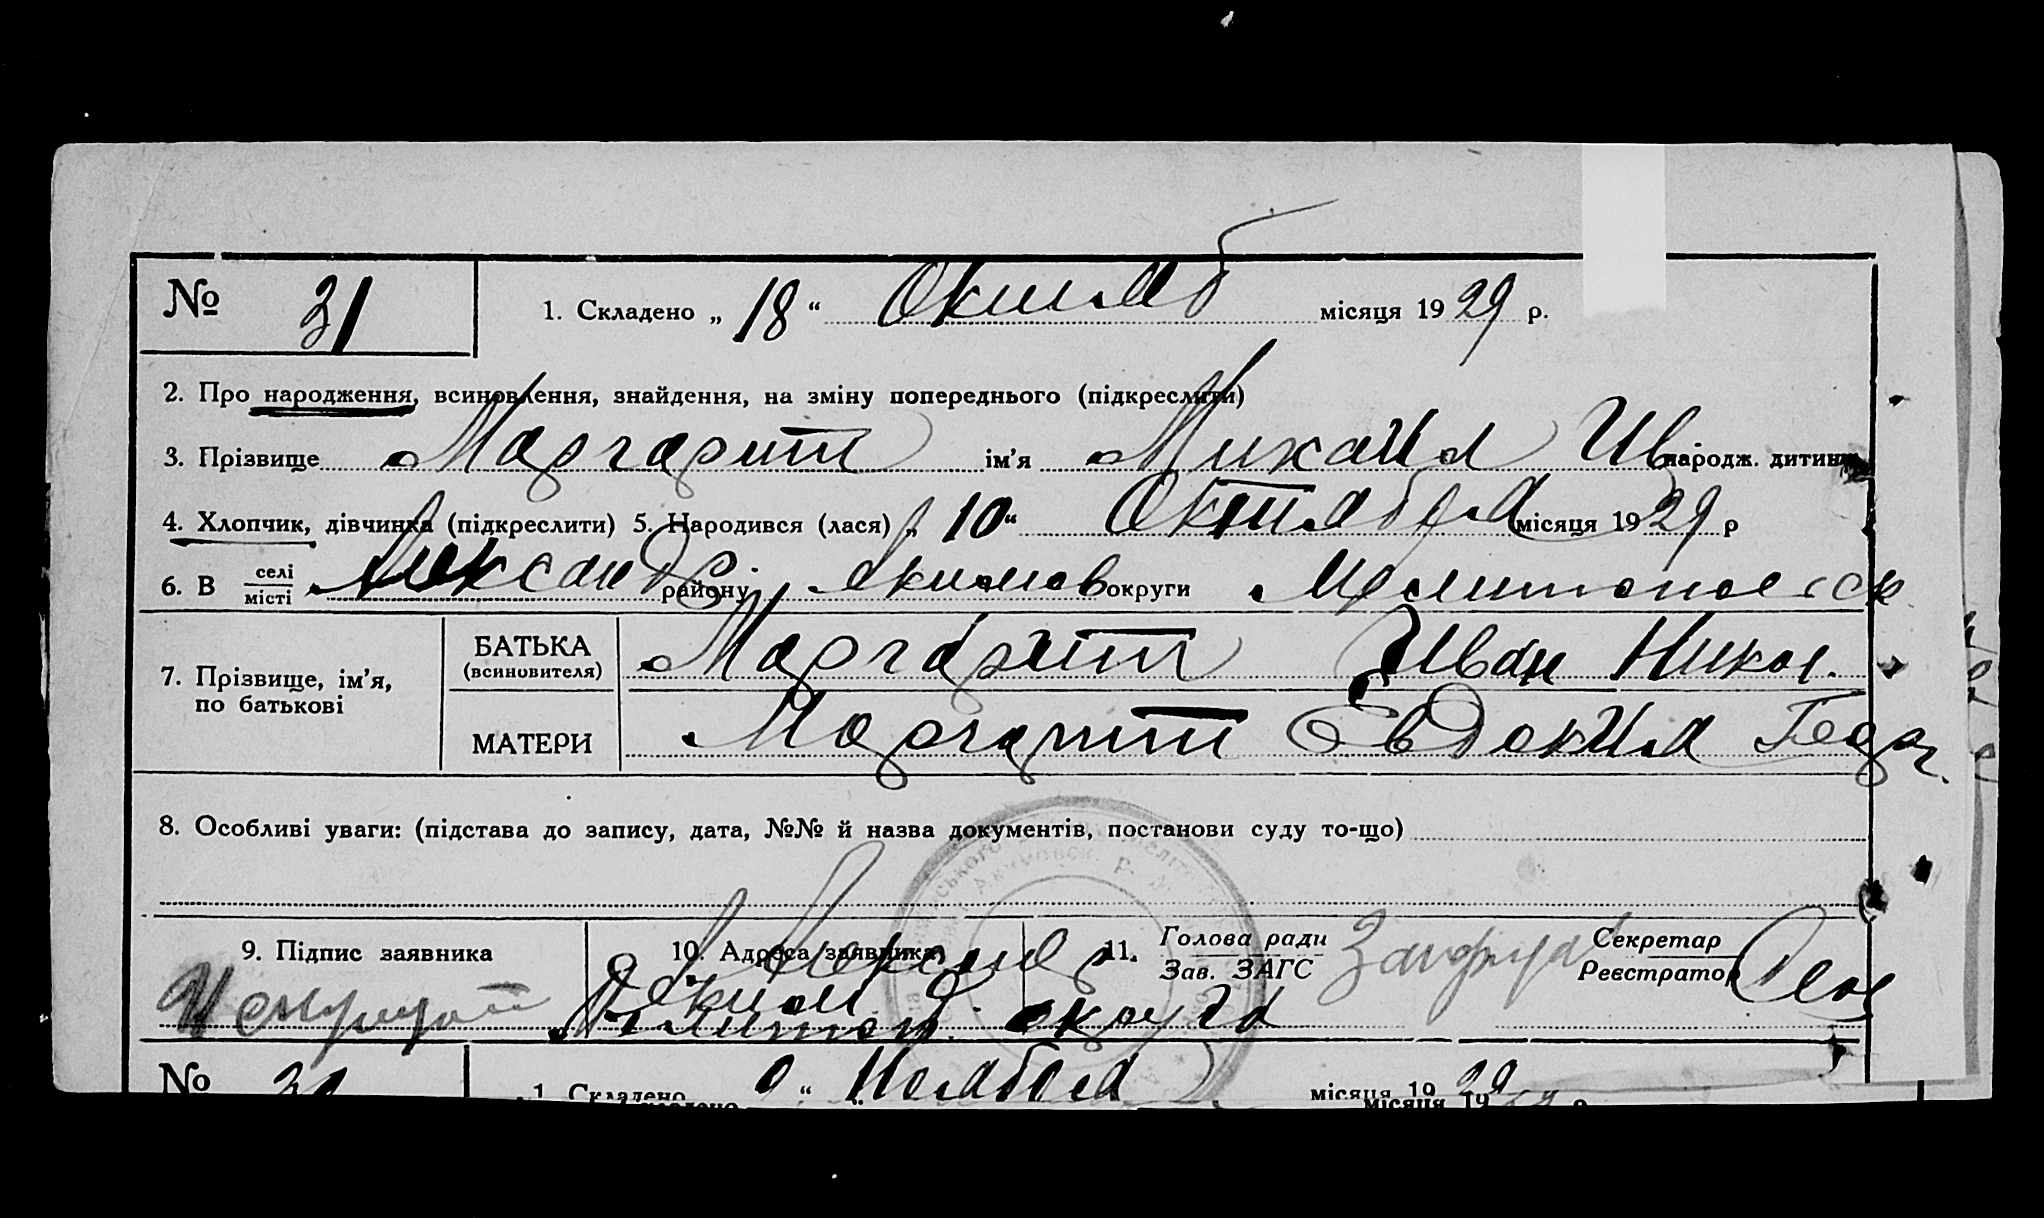 № 31 1. Складено „ 18 “ Октяб місяця 19 29 р.
2. Про народження, всиновлення, знайдення, на зміну попереднього (підкреслити)
3. Прізвище Маргарит ім'я Михаил Ив народж. дитини
4. Хлопчик, дівчинка (підкреслити) 5. Народився (лася) „ 10 “ Октября місяця 19 29 р
6. В селі місті Александр району Якимов округи Мелитопольск
7. Прізвище, ім'я, по батькові
БАТЬКА (всиновителя) Маргарит Иван Никол.
МАТЕРИ Маргарит Евдокия Геор
8. Особливі уваги: (підстава до запису, дата, №№ й назва документів, постанови суду то-що)
9. Підпис заявника 10. Адреса заявника 11. Голова ради Зав. ЗАГС Секретар Реєстратор
Александр
Яким
Мелитоп. округа
№ 1. Складено “ Ноября місяця 19 29
місяця 19